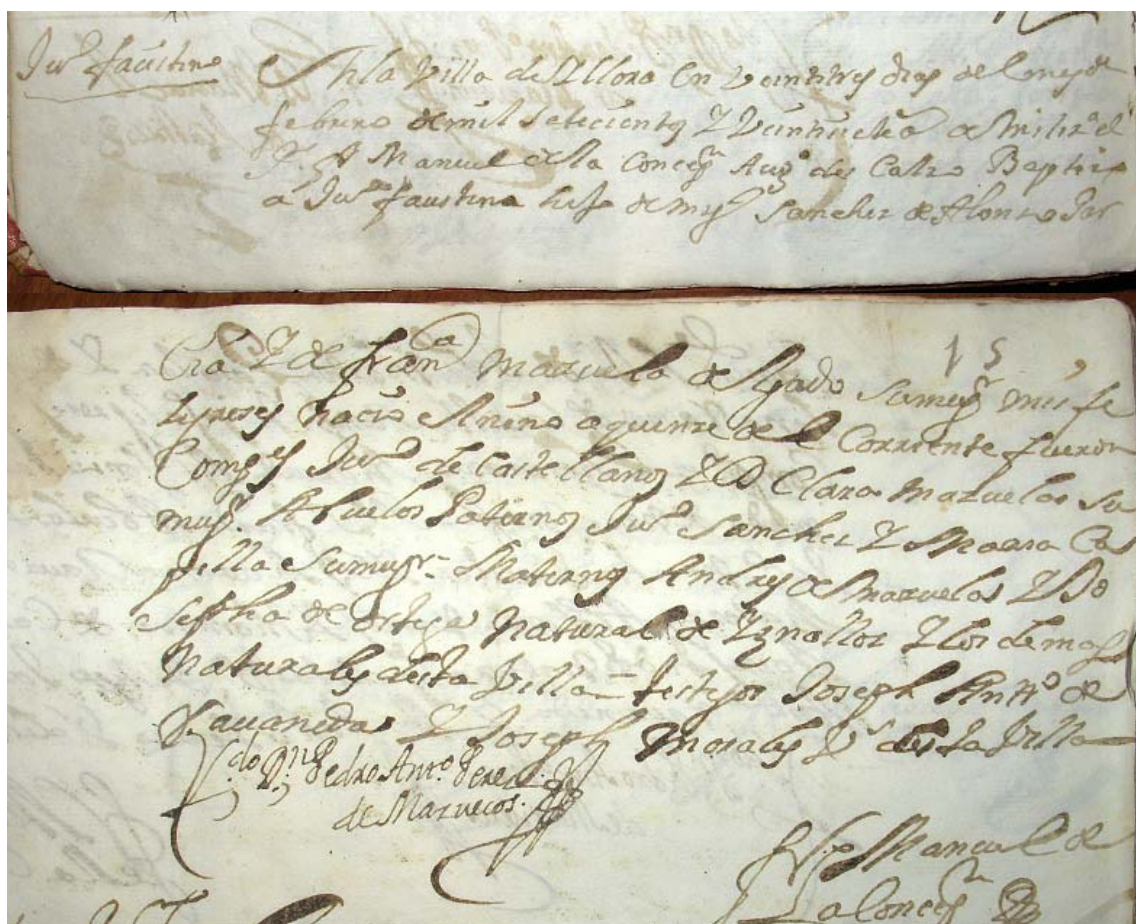 Juº faustino
En la Villa de Yllora en veintitres dias del mes de
febrero de mil setecientos Y Veintinuebe
Manuel de la Concepn Augº des Calzo Baptize
a Juº faustino hijo de Sanchez de Alonso Gar
15
Cia Y de franca Mazuela su mugr mis fe
nacio el niño a quinze de el Corriente fueron
Juº de Castellanos Y D Clara Mazuelas su
mugr. Abuelos Paternos Juº Sanchez Y Maria Cas
tilla su mugr. Maternos Andres de Mazuelas Y Jo
sepha de ortega Natural de Yznalloz Y los demas
Naturales desta Villa testigos Joseph Anttº de
Y Joseph Morales Vs desta Villa
Ldo Dn Pedro Antº Perez
de Mazuecos.
Manuel de
la Concepn